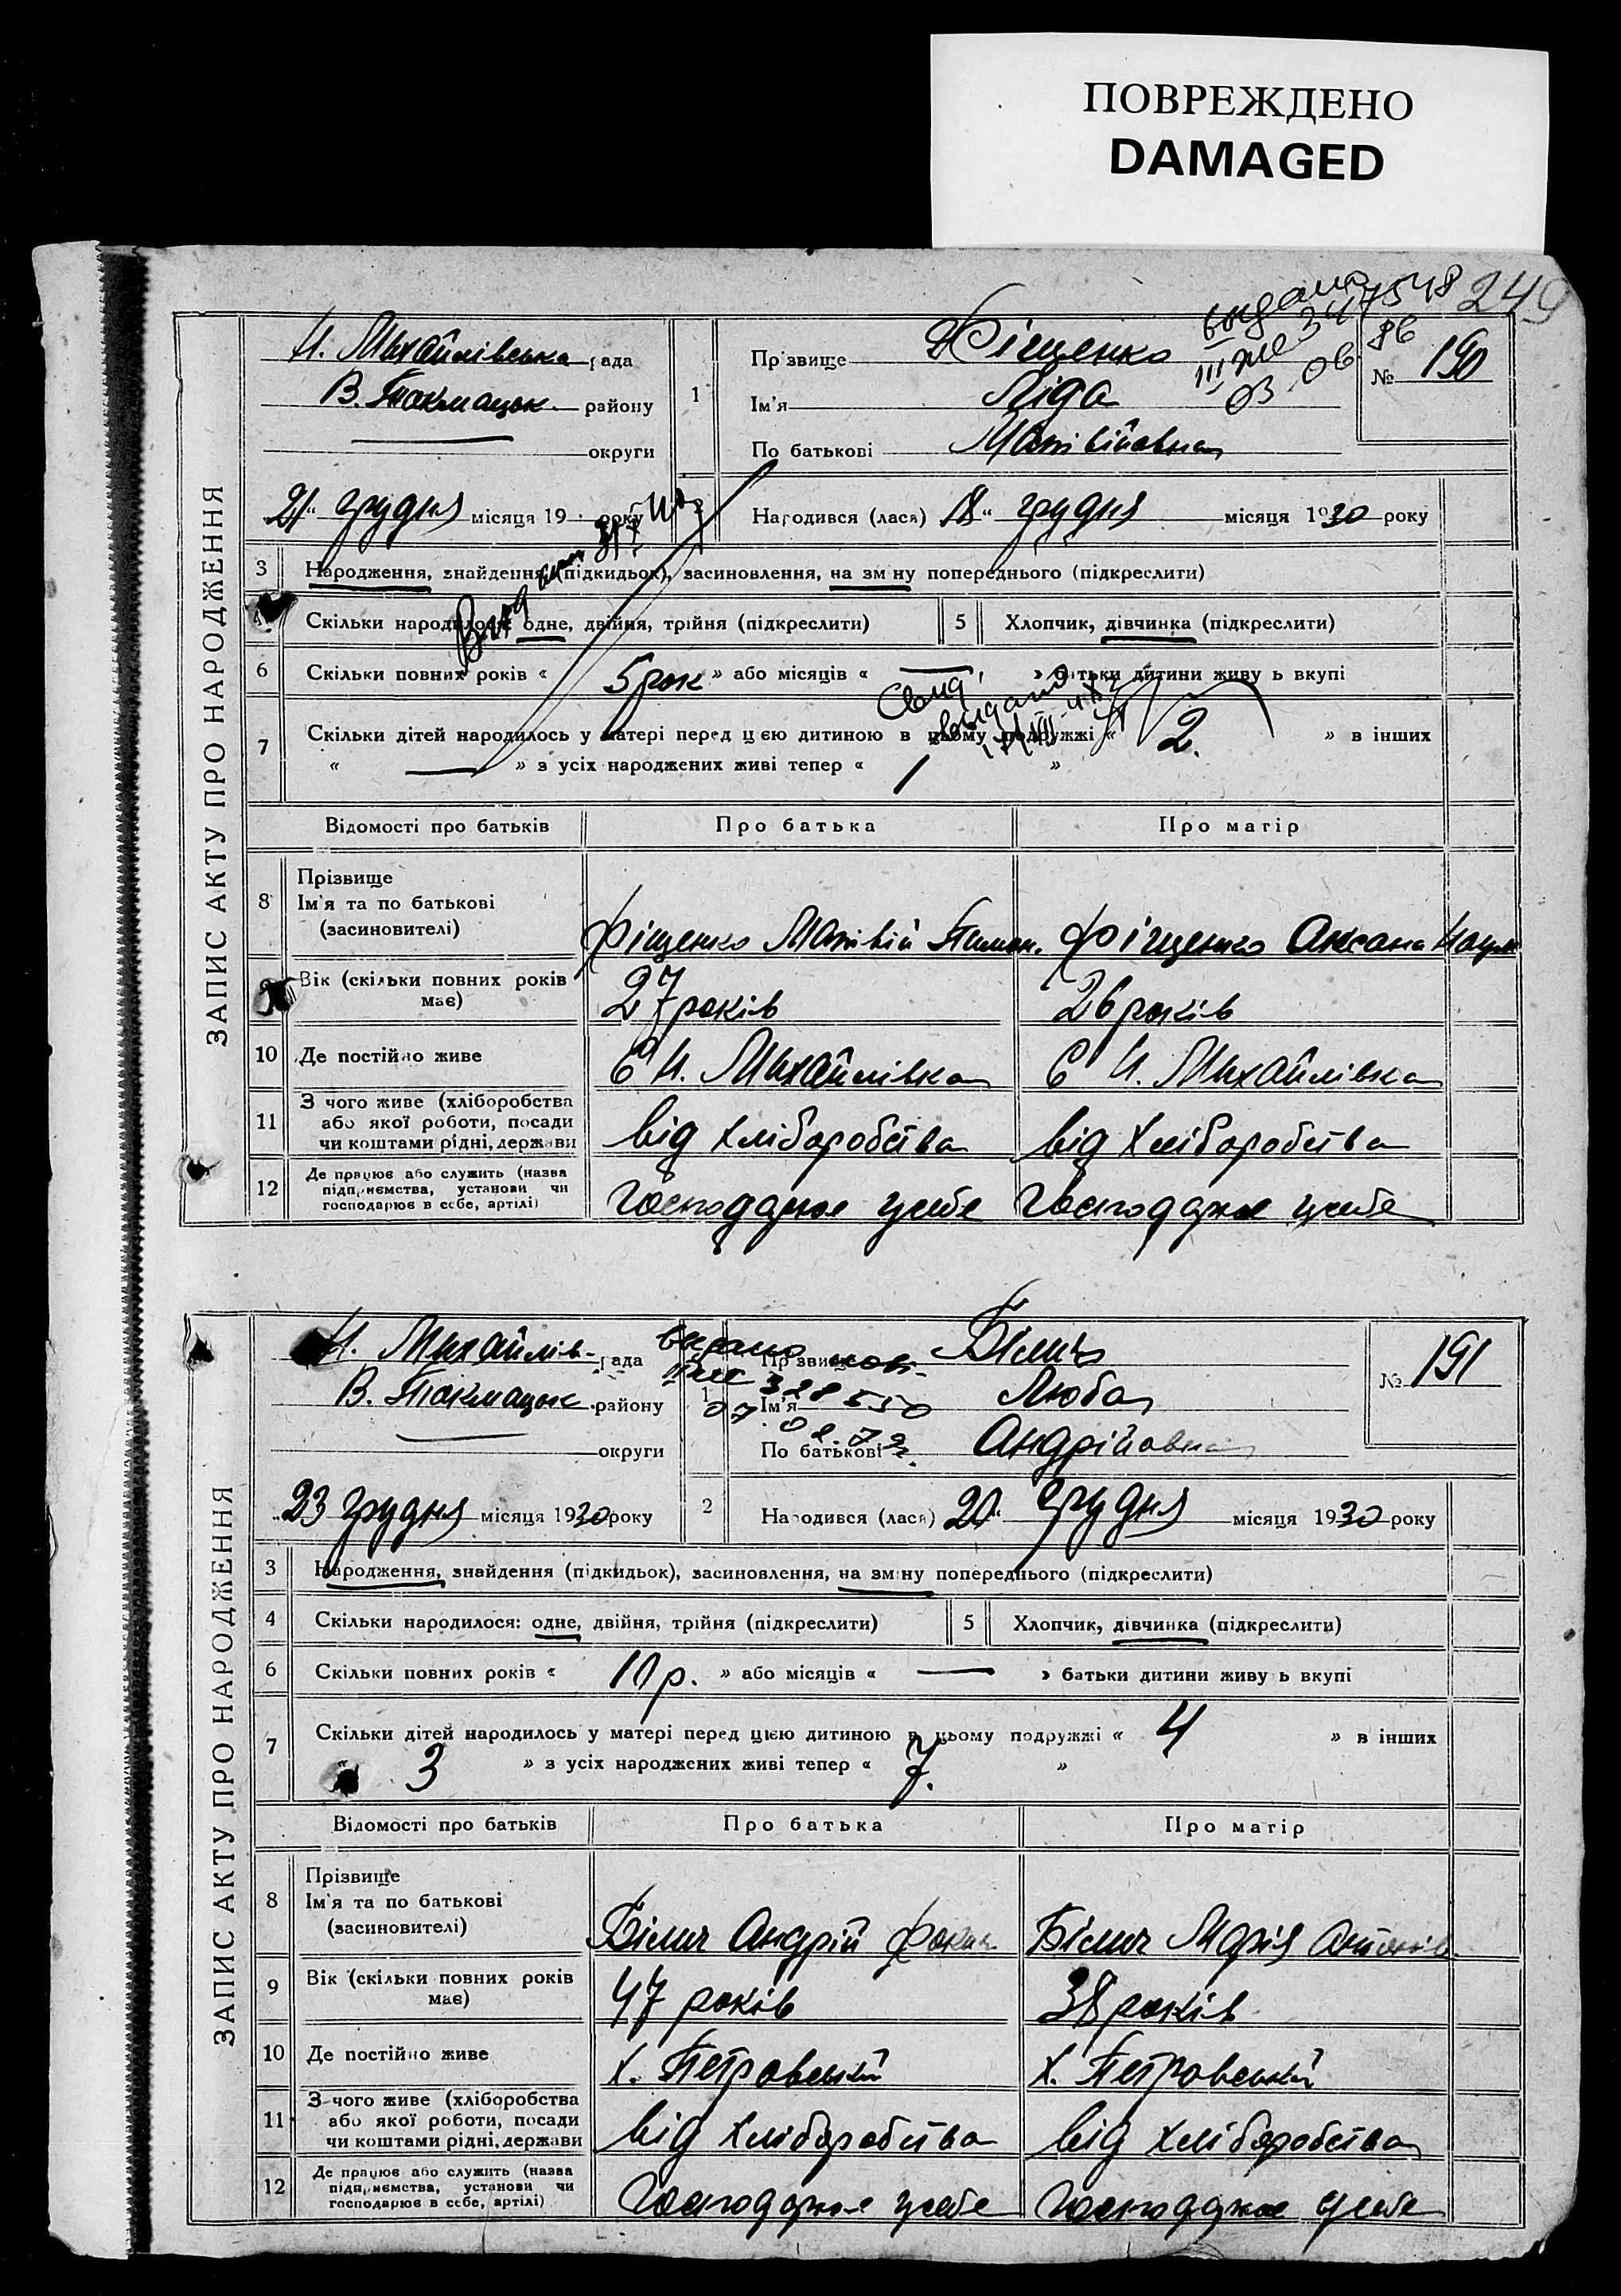 ПОВРЕЖДЕНО
DAMAGED
249
выдано
III ЖС 347548
03 06 86
ЗАПИС АКТУ ПРО НАРОДЖЕННЯ
Н. Михайлівська рада
В. Токмацьк. району
округи
1
Прізвище Фіщенко
Ім'я Ліда
По батькові Матвійовна
№ 190
21 грудня місяця 19 року
Народився (лася) 18 грудня місяця 1930 року
3 Народження, знайдення (підкидьок), засиновлення, на зміну попереднього (підкреслити)
4 Скільки народилося: одне, двійня, трійня (підкреслити)
5 Хлопчик, дівчинка (підкреслити)
6 Скільки повних років « 5 рок » або місяців « — » батьки дитини живуть вкупі
7 Скільки дітей народилось у матері перед цією дитиною в цьому подружжі « 2. » в інших
« — » з усіх народжених живі тепер « 1 »
Відомості про батьків Про батька Про матір
8 Прізвище
Ім'я та по батькові
(засновителі)
Фіщенко Матвій Фіщенко Аксана Наум
9 Вік (скільки повних років має) 27 років 26 років
10 Де постійно живе С Н. Михайлівка С Н. Михайлівка
11 З чого живе (хліборобства
або якої роботи, посади
чи коштами рідні, держави
від хліборобства від хліборобства
12 Де працює або служить (назва
підприємства, установи чи
господарює в себе, артілі)
Господарює усебе Господарює усебе
ЗАПИС АКТУ ПРО НАРОДЖЕННЯ
Н. Михайлів- рада
В. Токмацьк. району
округи
выдано
328550
07.02.73
1
Прізвище Білич
Ім'я Люба
По батькові Андрійовна
№ 191
23 грудня місяця 1930 року
2 Народився (лася) 20 грудня місяця 1930 року
3 Народження, знайдення (підкидьок), засиновлення, на зміну попереднього (підкреслити)
4 Скільки народилося: одне, двійня, трійня (підкреслити)
5 Хлопчик, дівчинка (підкреслити)
6 Скільки повних років « 10 р. » або місяців « — » батьки дитини живуть вкупі
7 Скільки дітей народилось у матері перед цією дитиною в цьому подружжі « 4 » в інших
« 3 » з усіх народжених живі тепер « 7. »
Відомості про батьків Про батька Про матір
8 Прізвище
Ім'я та по батькові
(засиновителі)
Білич Андрій Білич Марія Антонів.
9 Вік (скільки повних років має) 47 років 38 років
10 Де постійно живе х. Петровський х. Петровський
11 З чого живе (хліборобства
або якої роботи, посади
чи коштами рідні, держави
від хліборобства від хліборобства
12 Де працює або служить (назва
підприємства, установи чи
господарює в себе, артілі)
Господарює усебе Господарює усебе